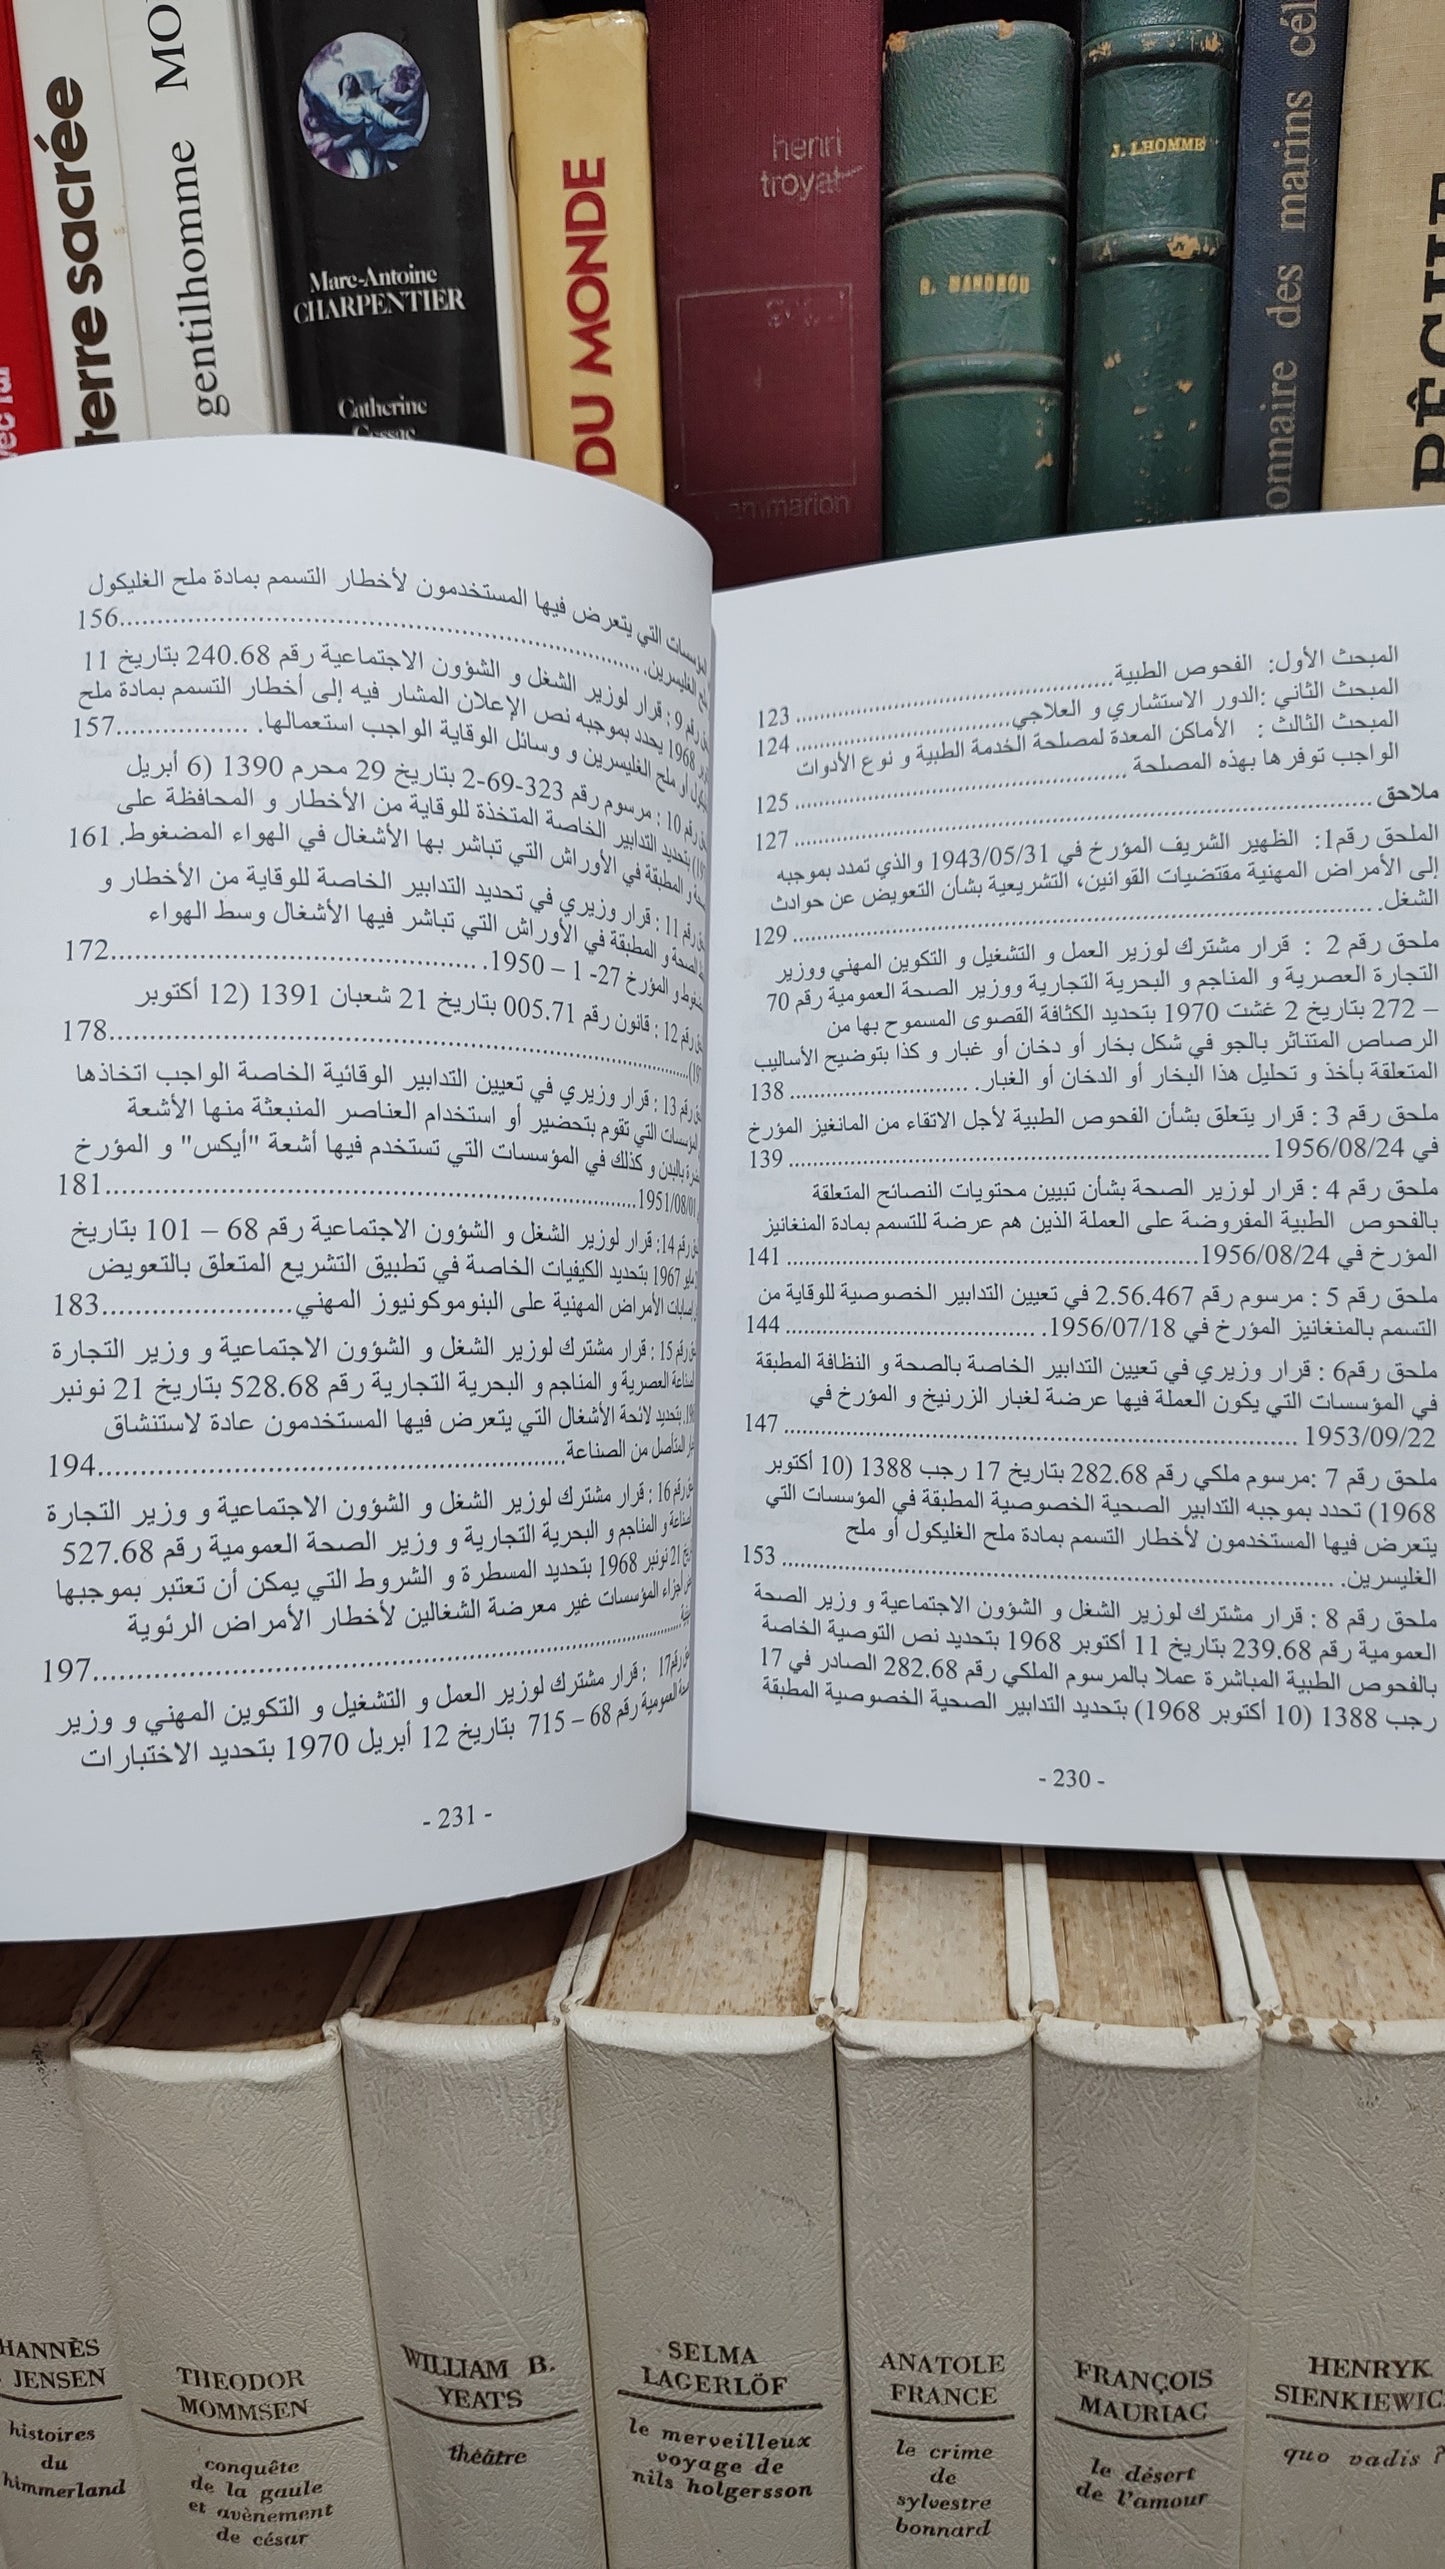 terre sacrée
MO
gentilhomme
Marc-Antoine
CHARPENTIER
Catherine
DU MONDE
henri
troyat
J. LHOMME
des marins
المبحث الأول: الفحوص الطبية.......... 123
المبحث الثاني :الدور الاستشاري و العلاجي.......... 124
المبحث الثالث : الأماكن المعدة لمصلحة الخدمة الطبية و نوع الأدوات
الواجب توفرها بهذه المصلحة .......... 125
ملاحق.......... 127
الملحق رقم1: الظهير الشريف المؤرخ في 1943/05/31 والذي تمدد بموجبه
إلى الأمراض المهنية مقتضيات القوانين، التشريعية بشأن التعويض عن حوادث
الشغل........... 129
ملحق رقم 2 : قرار مشترك لوزير العمل و التشغيل و التكوين المهني ووزير
التجارة العصرية و المناجم و البحرية التجارية ووزير الصحة العمومية رقم 70
– 272 بتاريخ 2 غشت 1970 بتحديد الكثافة القصوى المسموح بها من
الرصاص المتناثر بالجو في شكل بخار أو دخان أو غبار و كذا بتوضيح الأساليب
المتعلقة بأخذ و تحليل هذا البخار أو الدخان أو الغبار. .......... 138
ملحق رقم 3 : قرار يتعلق بشأن الفحوص الطبية لأجل الاتقاء من المانغيز المؤرخ
في 1956/08/24.......... 139
ملحق رقم 4 : قرار لوزير الصحة بشأن تبيين محتويات النصائح المتعلقة
بالفحوص الطبية المفروضة على العملة الذين هم عرضة للتسمم بمادة المنغانيز
المؤرخ في 1956/08/24.......... 141
ملحق رقم 5 : مرسوم رقم 2.56.467 في تعيين التدابير الخصوصية للوقاية من
التسمم بالمنغانيز المؤرخ في 1956/07/18. .......... 144
ملحق رقم6 : قرار وزيري في تعيين التدابير الخاصة بالصحة و النظافة المطبقة
في المؤسسات التي يكون العملة فيها عرضة لغبار الزرنيخ و المؤرخ في
1953/09/22 .......... 147
ملحق رقم 7 :مرسوم ملكي رقم 282.68 بتاريخ 17 رجب 1388 (10 أكتوبر
1968) تحدد بموجبه التدابير الصحية الخصوصية المطبقة في المؤسسات التي
يتعرض فيها المستخدمون لأخطار التسمم بمادة ملح الغليكول أو ملح
الغليسرين. .......... 153
ملحق رقم 8 : قرار مشترك لوزير الشغل و الشؤون الاجتماعية و وزير الصحة
العمومية رقم 239.68 بتاريخ 11 أكتوبر 1968 بتحديد نص التوصية الخاصة
بالفحوص الطبية المباشرة عملا بالمرسوم الملكي رقم 282.68 الصادر في 17
رجب 1388 (10 أكتوبر 1968) بتحديد التدابير الصحية الخصوصية المطبقة
- 230 -
التي يتعرض فيها المستخدمون لأخطار التسمم بمادة ملح الغليكول
الغليسرين. .......... 156
رقم 9 : قرار لوزير الشغل و الشؤون الاجتماعية رقم 240.68 بتاريخ 11
1968 يحدد بموجبه نص الإعلان المشار فيه إلى أخطار التسمم بمادة ملح
أو ملح الغليسرين و وسائل الوقاية الواجب استعمالها. .......... 157
رقم 10 : مرسوم رقم 323-69-2 بتاريخ 29 محرم 1390 (6 أبريل
بتحديد التدابير الخاصة المتخذة للوقاية من الأخطار و المحافظة على
و المطبقة في الأوراش التي تباشر بها الأشغال في الهواء المضغوط. 161
رقم 11 : قرار وزيري في تحديد التدابير الخاصة للوقاية من الأخطار و
الصحة و المطبقة في الأوراش التي تباشر فيها الأشغال وسط الهواء
و المؤرخ 27- 1 – 1950. .......... 172
رقم 12 : قانون رقم 005.71 بتاريخ 21 شعبان 1391 (12 أكتوبر
.......... 178
رقم 13 : قرار وزيري في تعيين التدابير الوقائية الخاصة الواجب اتخاذها
المؤسسات التي تقوم بتحضير أو استخدام العناصر المنبعثة منها الأشعة
بالبدن و كذلك في المؤسسات التي تستخدم فيها أشعة "أيكس" و المؤرخ
1951/08/01.......... 181
رقم 14: قرار لوزير الشغل و الشؤون الاجتماعية رقم 68 – 101 بتاريخ
مايو 1967 بتحديد الكيفيات الخاصة في تطبيق التشريع المتعلق بالتعويض
إصابات الأمراض المهنية على البنوموكونيوز المهني.......... 183
رقم 15 : قرار مشترك لوزير الشغل و الشؤون الاجتماعية و وزير التجارة
العصرية و المناجم و البحرية التجارية رقم 528.68 بتاريخ 21 نونبر
بتحديد لائحة الأشغال التي يتعرض فيها المستخدمون عادة لاستنشاق
المتأصل من الصناعة.......... 194
رقم 16 : قرار مشترك لوزير الشغل و الشؤون الاجتماعية و وزير التجارة
و المناجم و البحرية التجارية و وزير الصحة العمومية رقم 527.68
21 نونبر 1968 بتحديد المسطرة و الشروط التي يمكن أن تعتبر بموجبها
أجزاء المؤسسات غير معرضة الشغالين لأخطار الأمراض الرئوية
.......... 197
رقم17 : قرار مشترك لوزير العمل و التشغيل و التكوين المهني و وزير
العمومية رقم 68 – 715 بتاريخ 12 أبريل 1970 بتحديد الاختبارات
- 231 -
HANNÈS
JENSEN
histoires
du
himmerland
THEODOR
MOMMSEN
conquête
de la gaule
et avènement
de césar
WILLIAM B.
YEATS
théâtre
SELMA
LAGERLÖF
le merveilleux
voyage de
nils holgersson
ANATOLE
FRANCE
le crime
de
sylvestre
bonnard
FRANÇOIS
MAURIAC
le désert
de l'amour
HENRYK
SIENKIEWIC
quo vadis ?